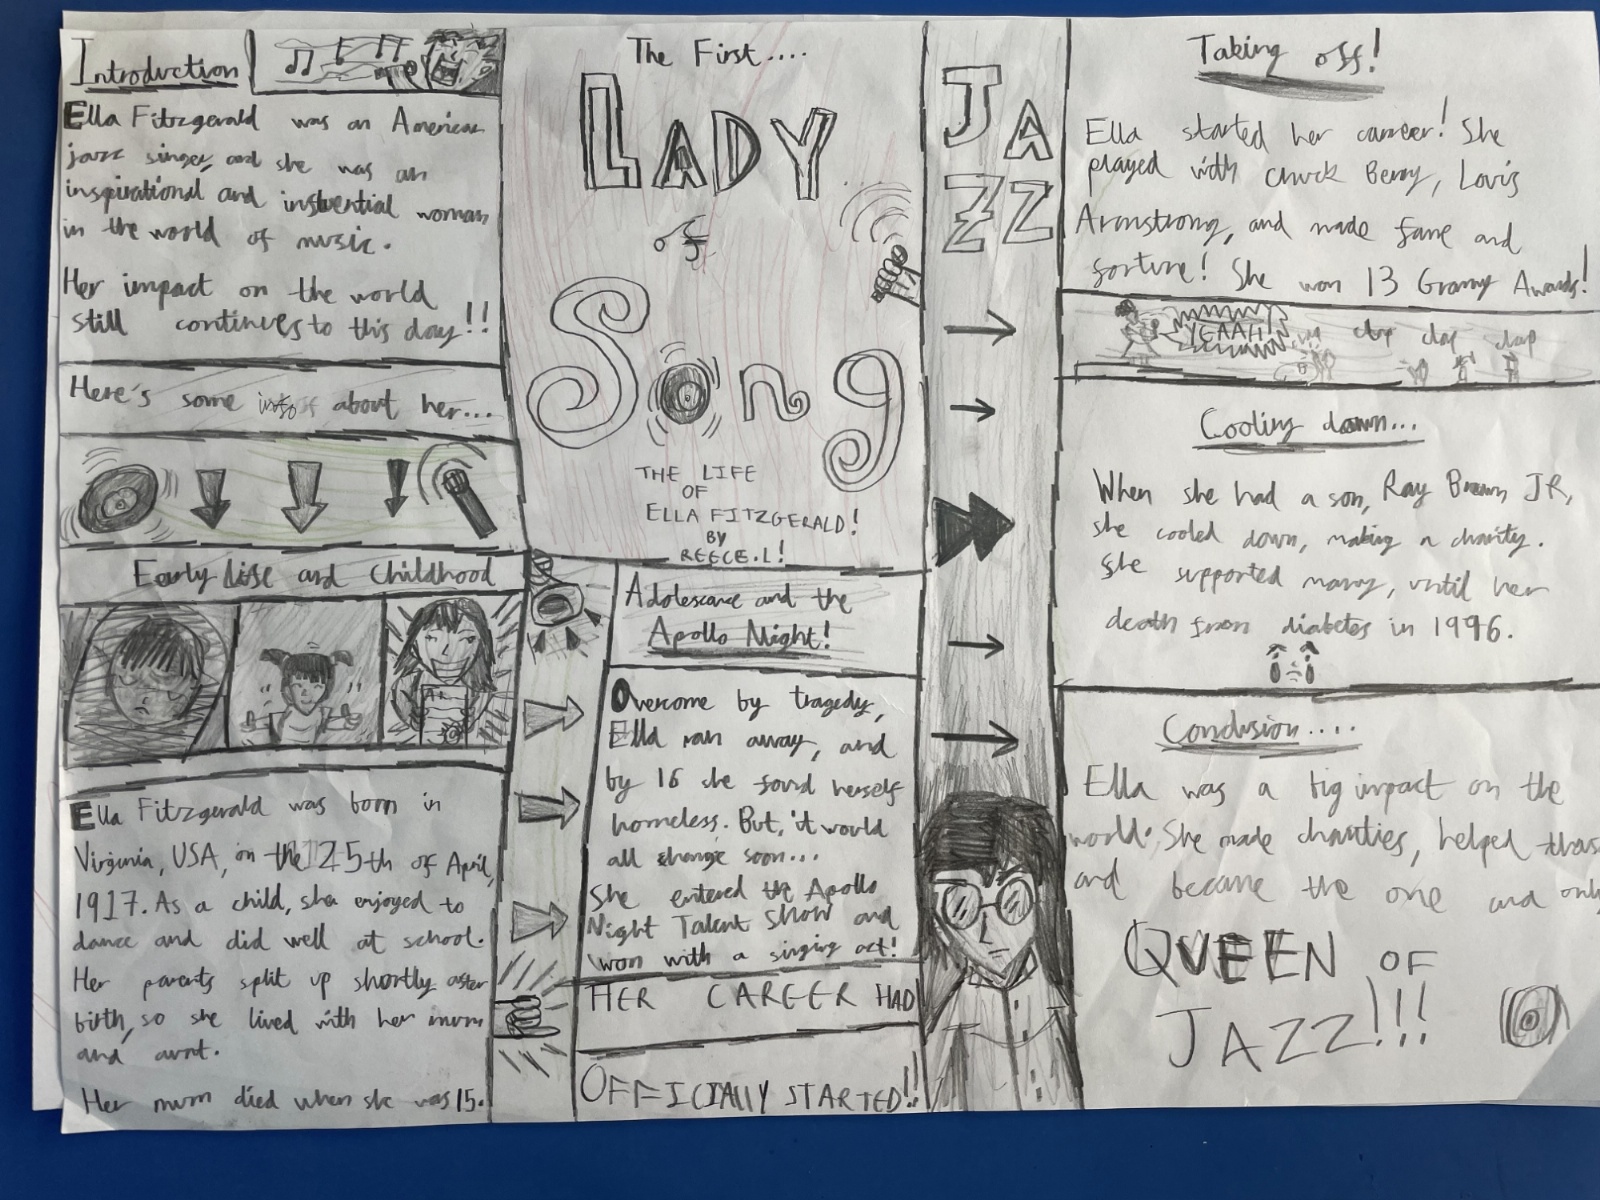 Introduction
Ella Fitzgerald was an American
jazz singer, and she was an
inspirational and instuential woman
in the world of music.
Her impact on the world
still continues to this day!!
Here's some info about her...
Early life and Childhood
Ella Fitzgerald was born in
Virginia, USA, on the 25th of April,
1917. As a child, she enjoyed to
dance and did well at school.
Her parents split up shortly after
birth, so she lived with her mum
and aunt.
Her mum died when she was 15.
The First....
LADY
of
Song
THE LIFE
OF
ELLA FITZGERALD!
BY
REECE.L!
Adolescance and the
Apollo Night!
Overcome by tragedy,
Ella ran away, and
by 16 she found herself
homeless. But, it would
all change soon...
She entered the Apollo
Night Talent Show and
won with a singing act!
HER CAREER HAD
OFFICIALLY STARTED!!
JA
ZZ
Taking off!
Ella started her carreer! She
played with Chuck Berry, Lovis
Armstrong, and made fame and
fortune! She won 13 Grammy Awards!
YEAAH
clap clap clap
Cooling down...
When she had a son, Ray Brown JR,
she cooled down, making a charity.
She supported many, until her
death from diabetes in 1996.
Conclusion....
Ella was a big impact on the
world. She made charities, helped
and became the one and only
QUEEN OF
JAZZ!!!